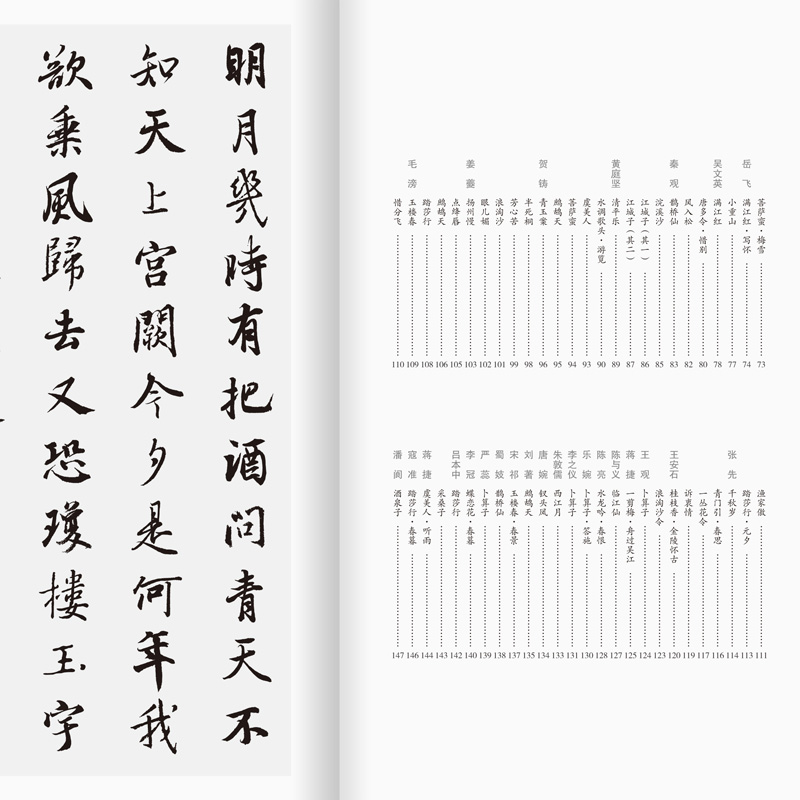 明月幾時有把酒問青天不
知天上宮闕今夕是何年我
欲乘風歸去又恐瓊樓玉宇
菩萨蛮·梅雪 73
岳飞 满江红·写怀 74
小重山 77
吴文英 满江红 78
唐多令·惜别 80
风入松 82
秦观 鹊桥仙 83
浣溪沙 85
江城子（其一） 86
江城子（其二） 87
黄庭坚 清平乐 89
水调歌头·游览 90
虞美人 93
菩萨蛮 94
鹧鸪天 95
贺铸 青玉案 96
半死桐 98
芳心苦 99
浪淘沙 101
眼儿媚 102
姜夔 扬州慢 103
点绛唇 105
鹧鸪天 106
踏莎行 108
毛滂 玉楼春 109
惜分飞 110
渔家傲 111
踏莎行·元夕 113
张先 千秋岁 114
青门引·春思 116
一丛花令 117
诉衷情 119
王安石 桂枝香·金陵怀古 120
浪淘沙令 123
王观 卜算子 124
蒋捷 一剪梅·舟过吴江 125
陈与义 临江仙 127
陈亮 水龙吟·春恨 128
乐婉 卜算子·答施 130
李之仪 卜算子 131
朱敦儒 西江月 133
唐婉 钗头凤 134
刘著 鹧鸪天 135
宋祁 玉楼春·春景 137
蜀妓 鹊桥仙 138
严蕊 卜算子 139
李冠 蝶恋花·春暮 140
吕本中 踏莎行 142
采桑子 143
蒋捷 虞美人·听雨 144
寇准 踏莎行·春暮 146
潘阆 酒泉子 147